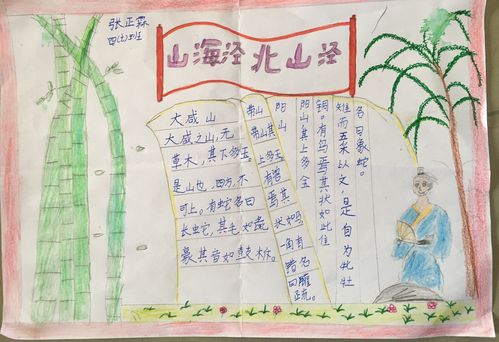 张正霖
四(七)班
山海泾 北山泾
大咸山
大咸之山,无
草木,其下多玉
是山也,四方,不
可上。有蛇名曰
长蛇,其毛如彘
豪其音如鼓柝。
带山
带山其
上多玉
有兽
焉其
状如马
一角有
名曰
疏。
阳山
阳山其上多金
铜。有鸟焉其状如此隹
雉而五采以文,是自为牝牡
名曰象蛇。